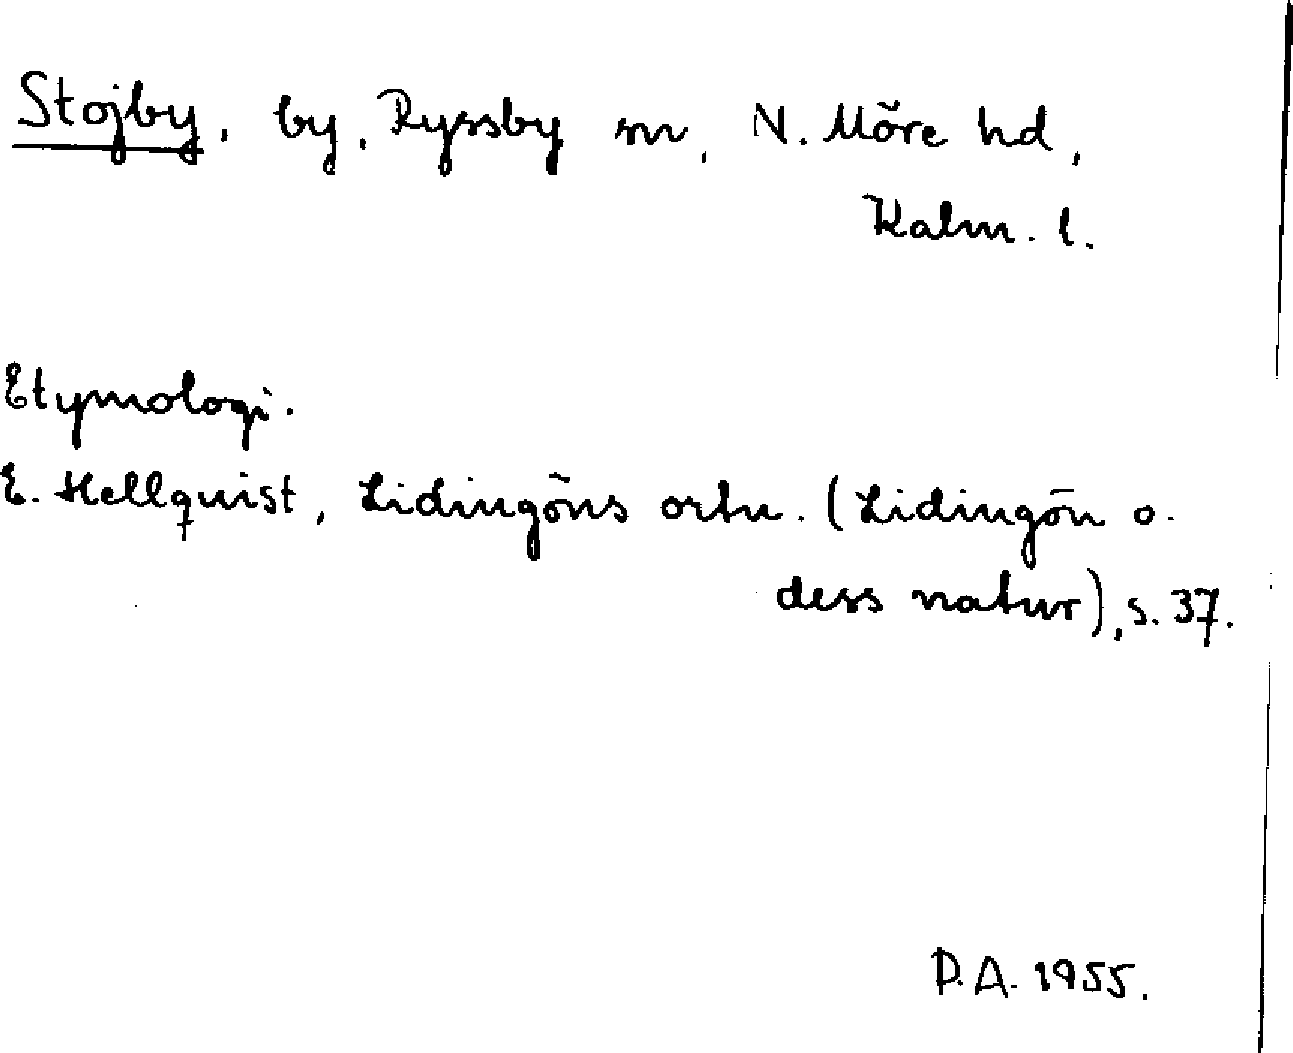 Stojby, by, Ryssby sn, N. Möre hd,
Kalm. l.
Etymologi.
E. Hellquist, Lidingöns ortn. (Lidingön o.
dess natur), s. 37.
D.A. 1955.